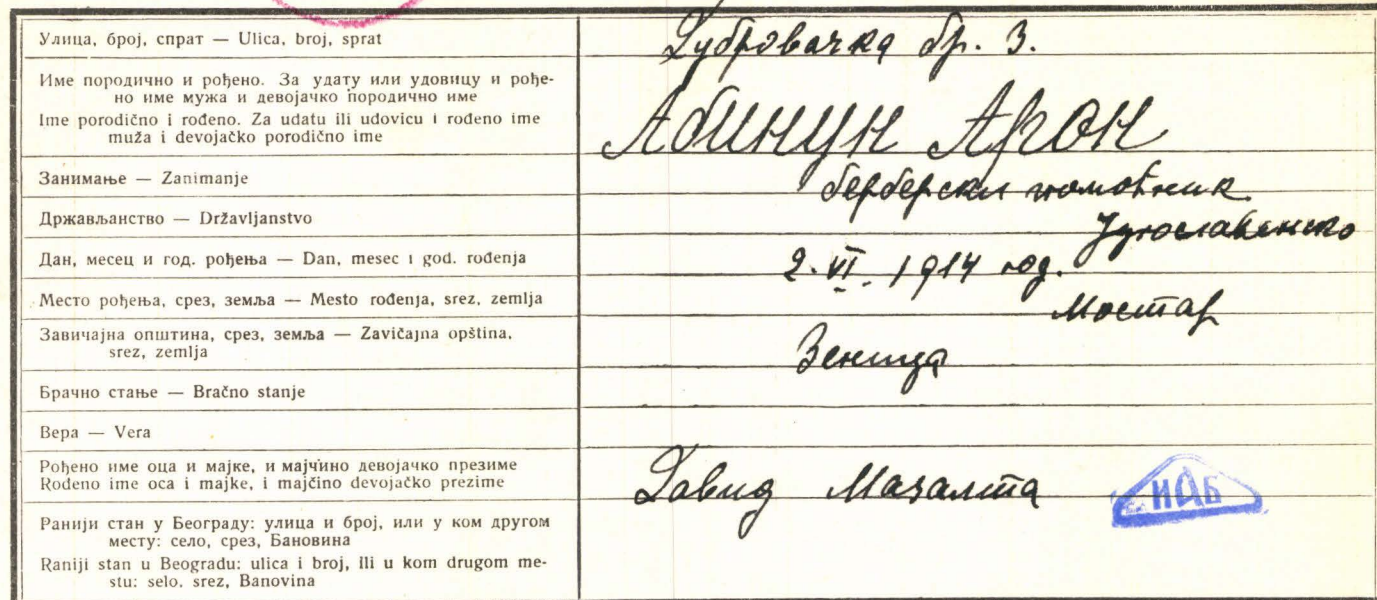 Улица, број, спрат — Ulica, broj, sprat
Дубровачка бр. 3.
Име породично и рођено. За удату или удовицу и рође-
но име мужа и девојачко породично име
Ime porodično i rođeno. Za udatu ili udovicu i rođeno ime
muža i devojačko porodično ime
Абинун Арон
Занимање — Zanimanje
берберски помоћник
Држављанство — Državljanstvo
Југославенско
Дан, месец и год. рођења — Dan, mesec i god. rođenja
2. VI. 1914 год.
Место рођења, срез, земља — Mesto rođenja, srez, zemlja
Мостар
Завичајна општина, срез, земља — Zavičajna opština,
srez, zemlja
Зеница
Брачно стање — Bračno stanje
Вера — Vera
Рођено име оца и мајке, и мајчино девојачко презиме
Rođeno ime oca i majke, i majčino devojačko prezime
Давид Мазалта
ИАБ
Ранији стан у Београду: улица и број, или у ком другом
месту: село, срез, Бановина
Raniji stan u Beogradu: ulica i broj, ili u kom drugom me-
stu: selo, srez, Banovina